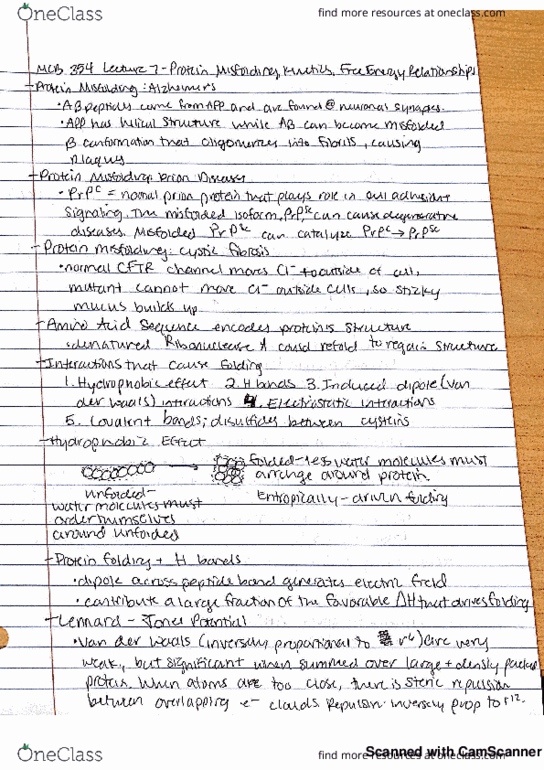 OneClass
find more resources at oneclass.com
MCB 354 Lecture 7 - Protein Misfolding, Kinetics, Free Energy Relationships
- Protein Misfolding: Alzheimers
• Aβ peptides come from APP and are found @ neuronal synapses.
• APP has helical structure while Aβ can become misfolded
β conformation that oligomerizes into fibrils, causing
plaques
- Protein Misfolding: Prion Diseases
• PrPᶜ = normal prion protein that plays role in cell adhesion
signaling. The misfolded isoform, PrPˢᶜ, can cause degenerative
diseases. Misfolded PrPˢᶜ can catalyze PrPᶜ → PrPˢᶜ
- Protein misfolding: cystic fibrosis
• normal CFTR channel moves Cl⁻ to outside of cell,
mutant cannot move Cl⁻ outside cells, so sticky
mucus builds up
- Amino Acid Sequence encodes proteins structure
• denatured Ribonuclease A could refold to regain structure
- Interactions that cause folding
1. Hydrophobic effect 2. H bonds 3. Induced dipole (van
der waals) interactions 4. Electrostatic interactions
5. Covalent bonds; disulfides between cysteins
- Hydrophobic Effect
→ folded - less water molecules must
arrange around protein.
unfolded -
water molecules must
order themselves
around unfolded
Entropically - driven folding
- Protein folding + H bonds
• dipole across peptide bond generates electric field
• contribute a large fraction of the favorable ΔH that drives folding
- Lennard - Jones Potential
• Van der Waals (inversely proportional to r⁶) are very
weak, but significant when summed over large + densly packed
protein. When atoms are too close, there is steric repulsion
between overlapping e- clouds. Repulsion inversely prop to r¹².
OneClass
find more resources at oneclass.com
Scanned with CamScanner